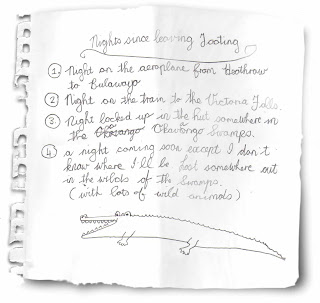 Nights since leaving Tooting
1. Night on the aeroplane from Heathrow
to Bulawayo
2. Night on the train to the Victoria Falls.
3. Night locked up in the hut somewhere in
the Okavango Swamps.
4. a night coming soon except I don't
know where I'll be lost somewhere out
in the wilds of the Swamps.
(with lots of wild animals)